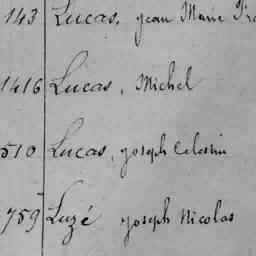 143 Lucas, jean Marie
1416 Lucas, Michel
510 Lucas, joseph Celestin
759 Luzé joseph Nicolas